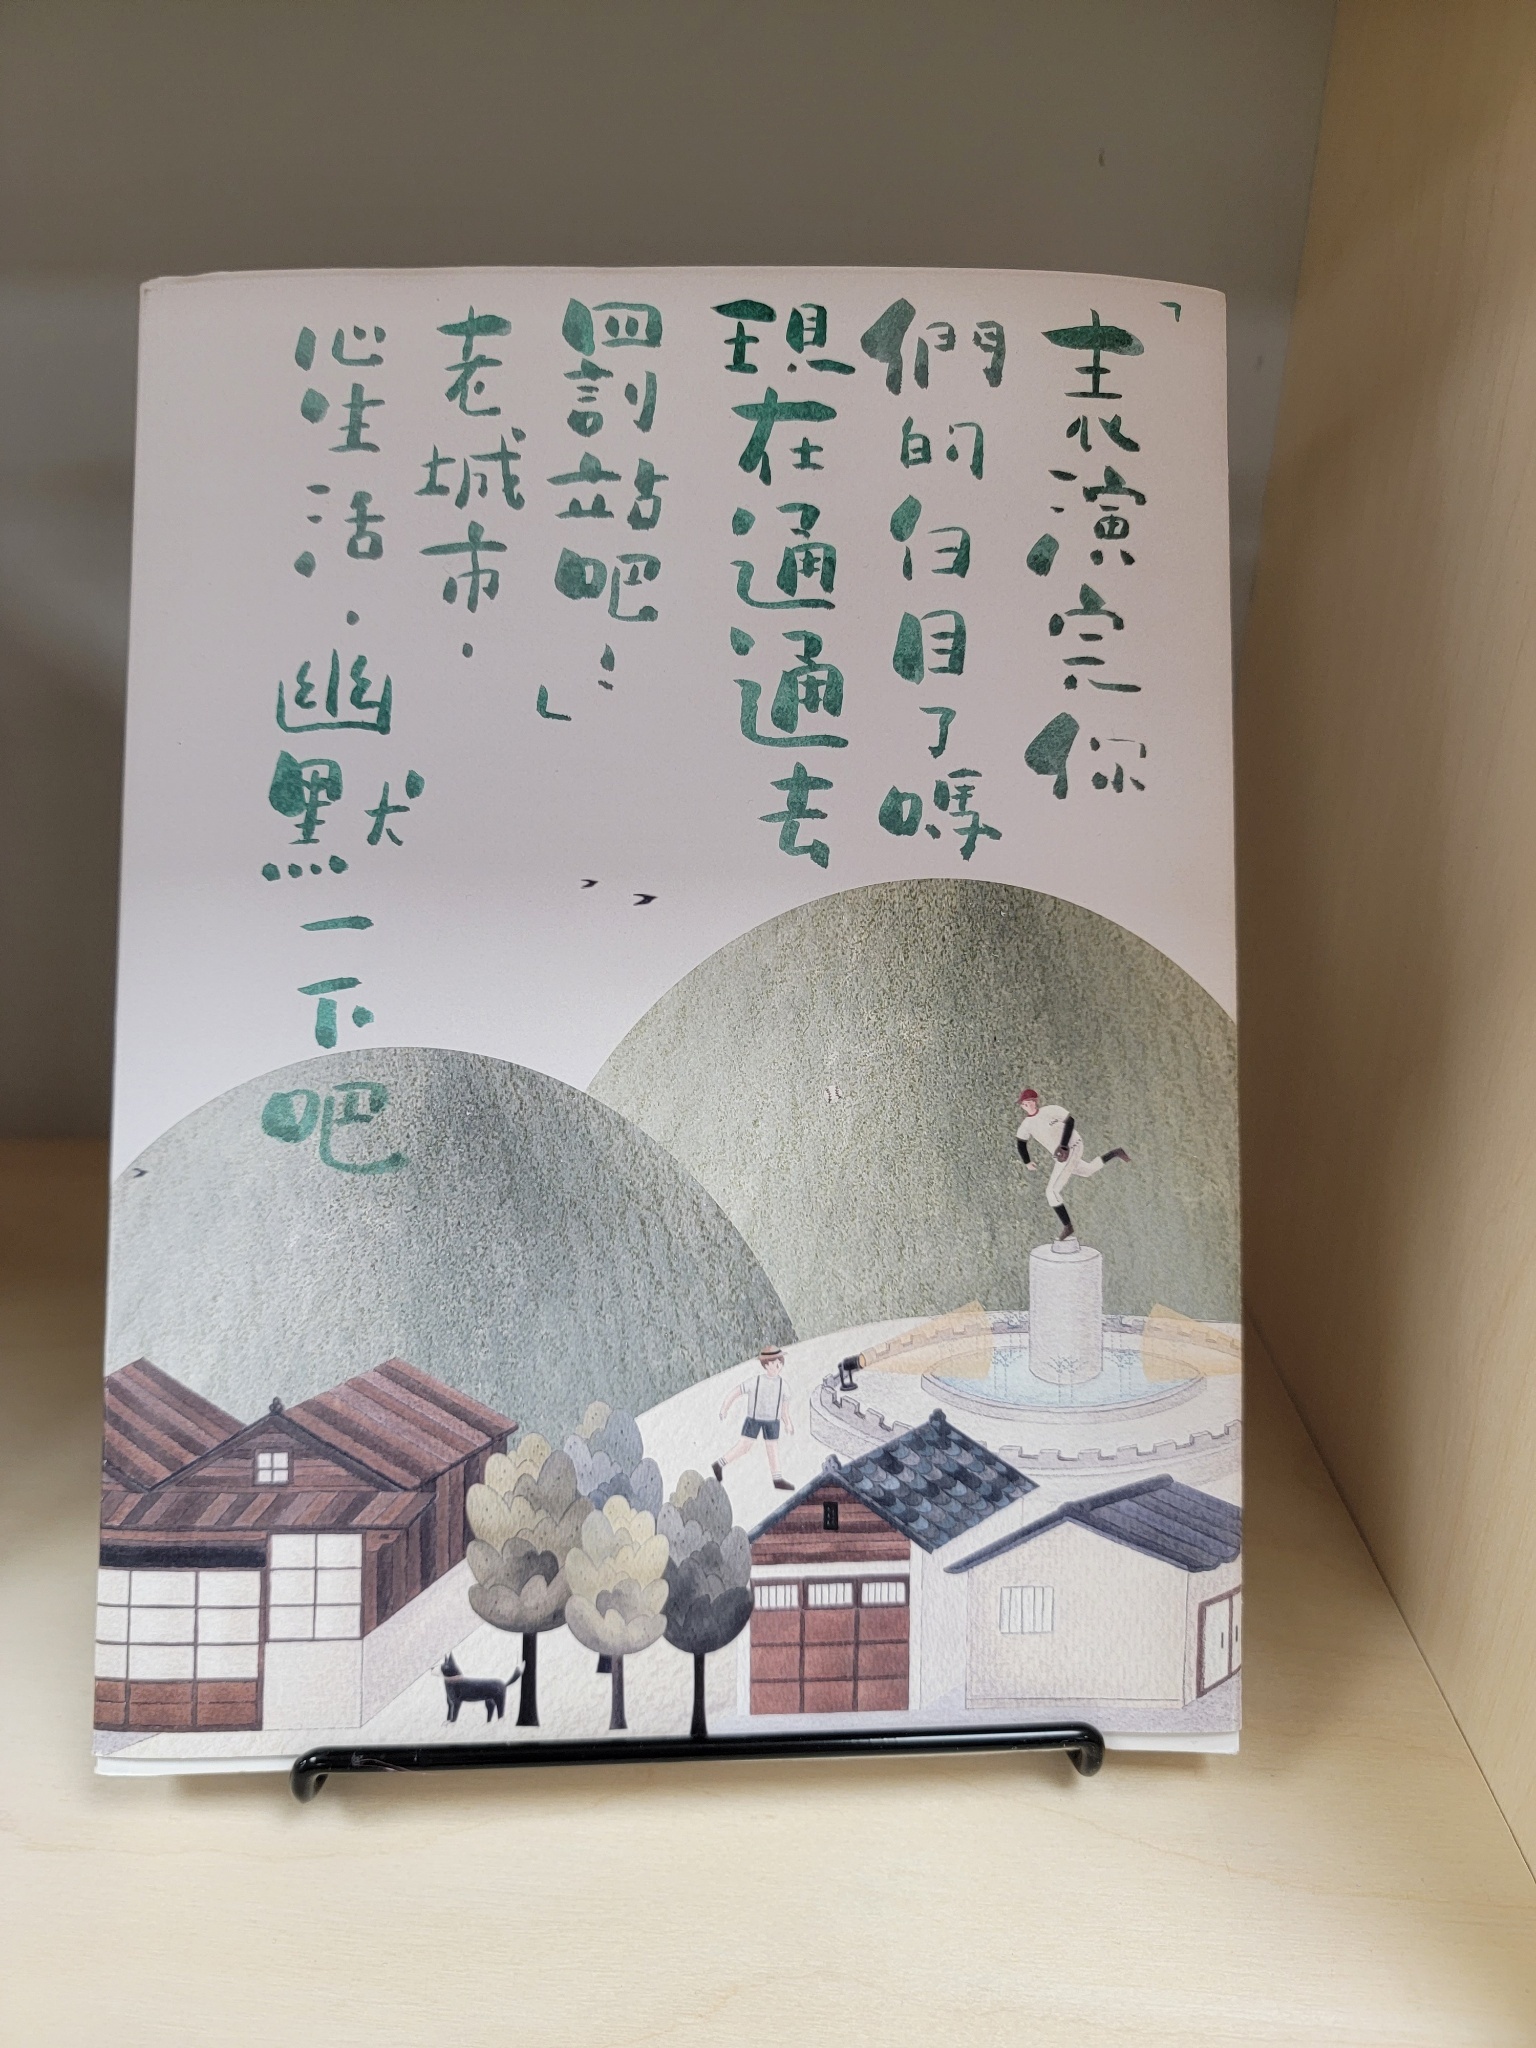 「表演完你
們的白目了嗎
現在通通去
罰站吧！」
老城市．
心生活．幽默一下吧